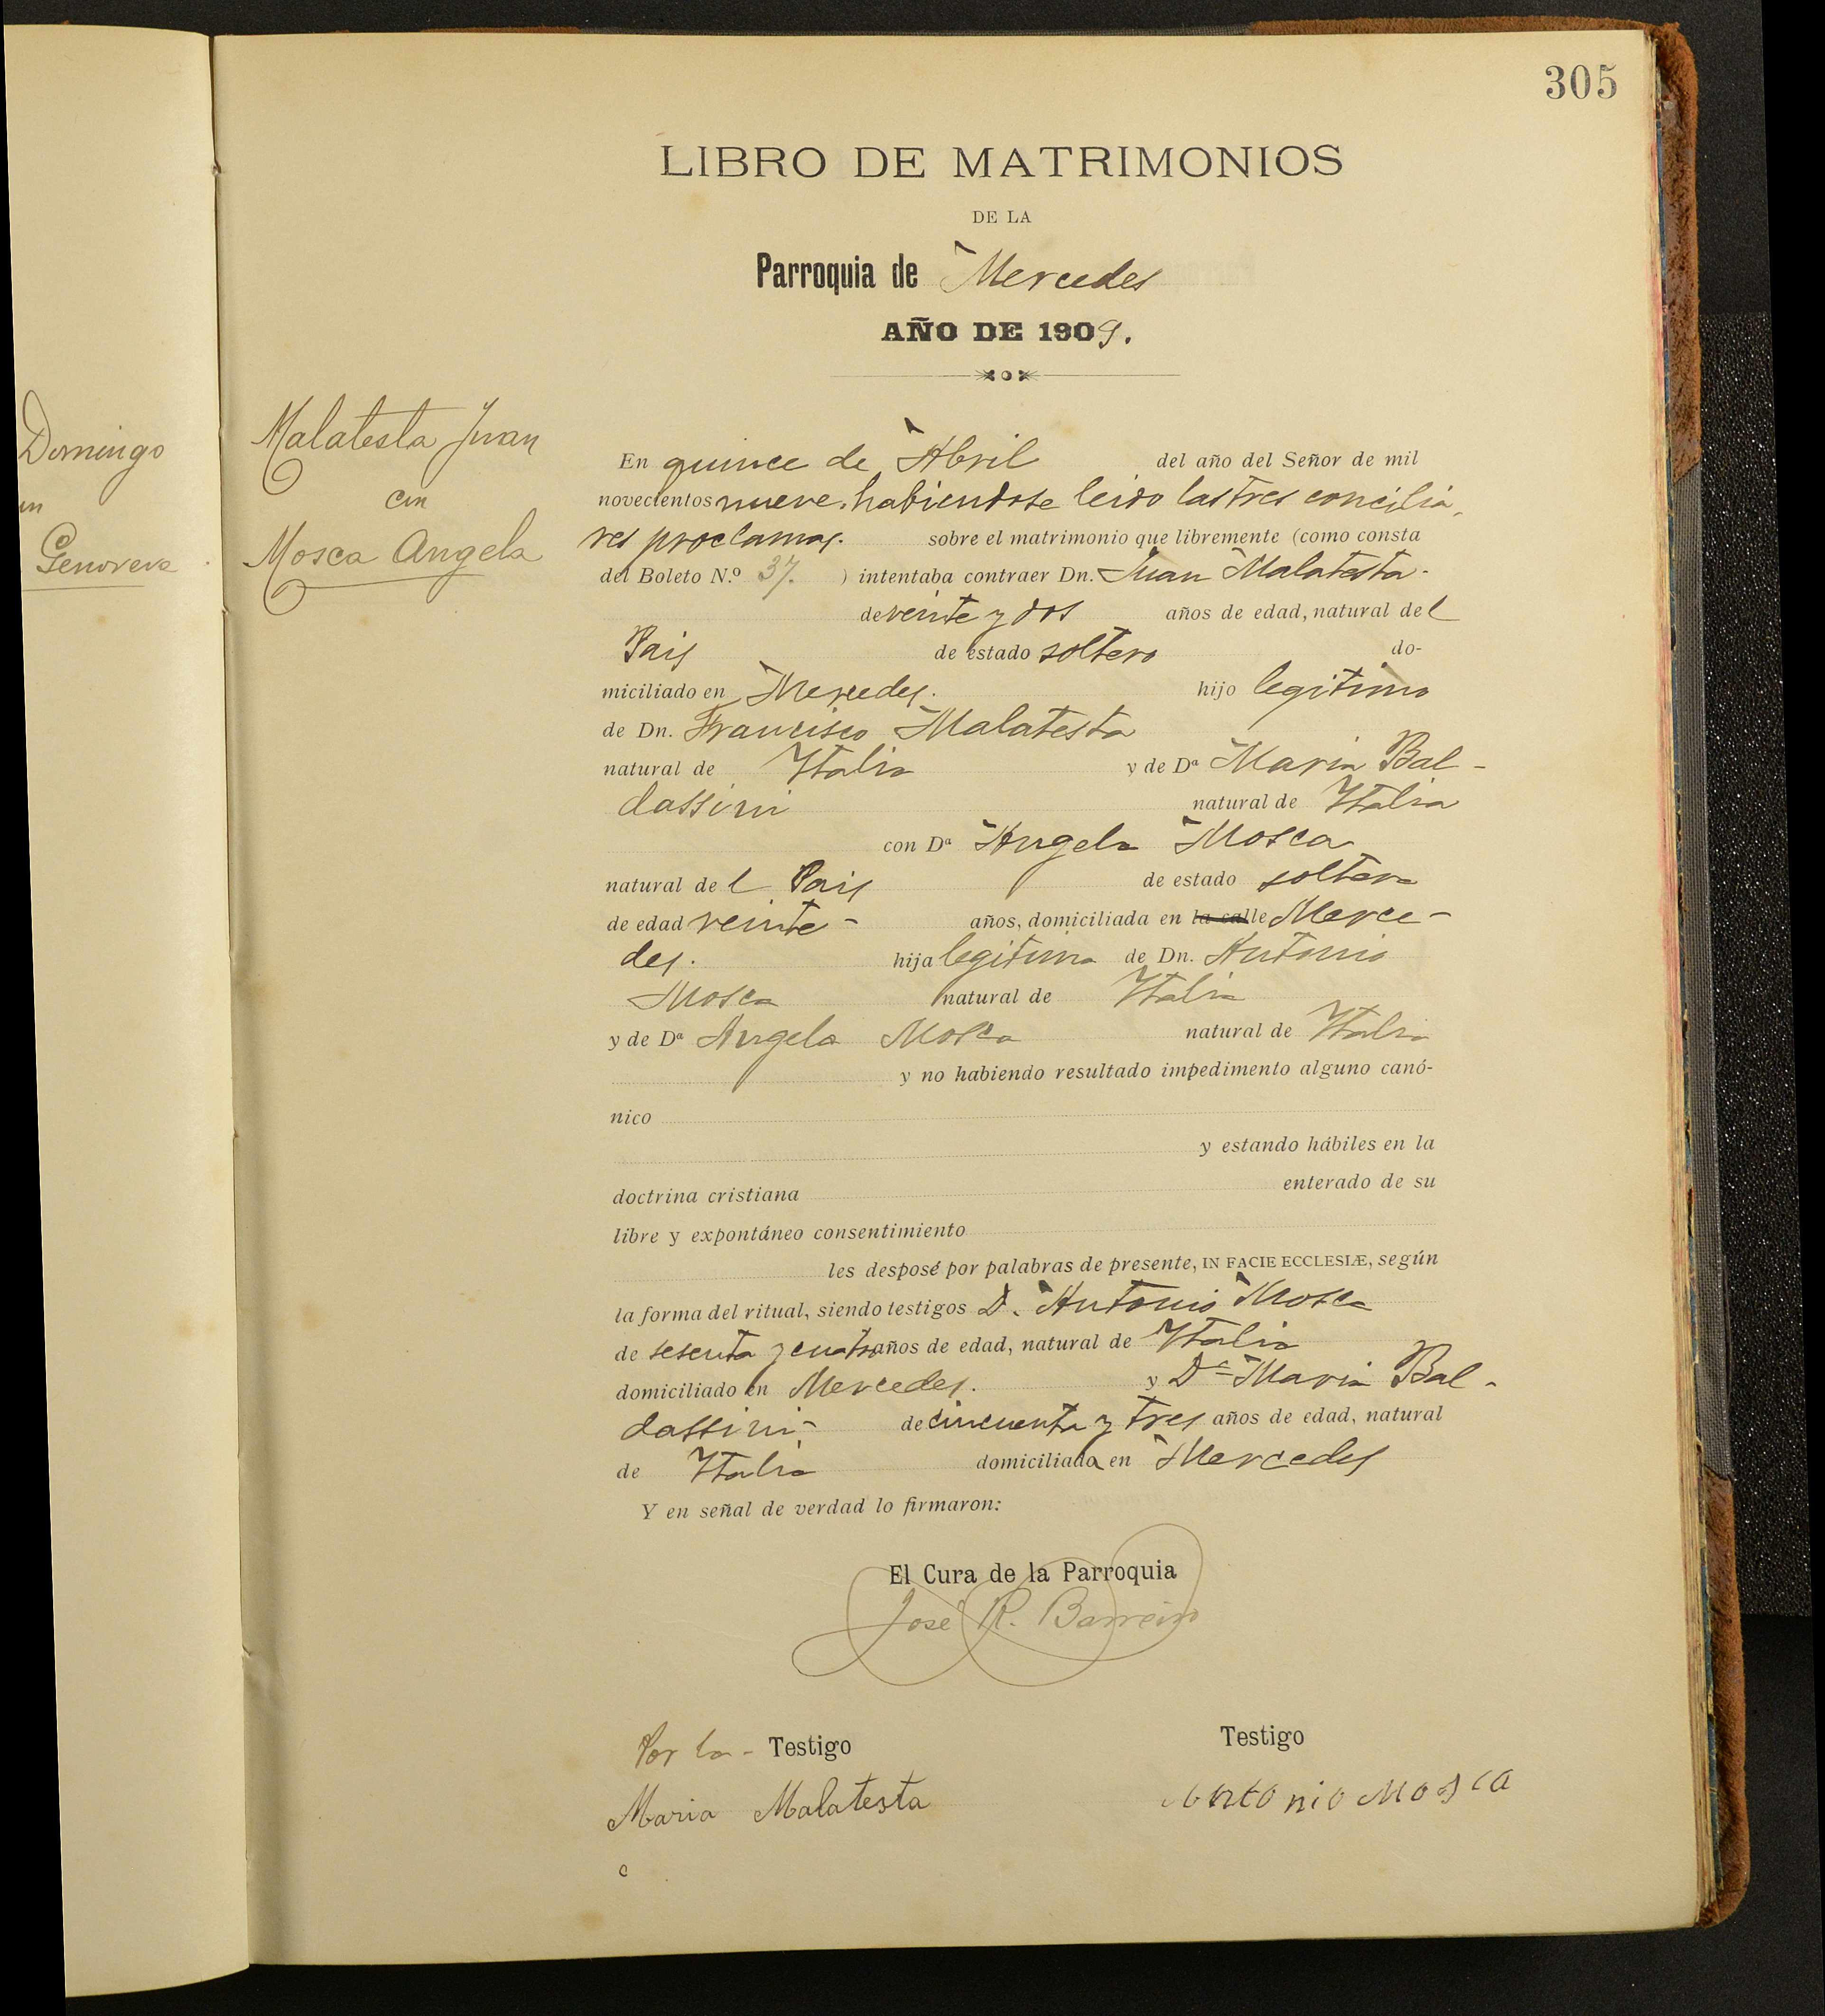 305
LIBRO DE MATRIMONIOS
DE LA
Parroquia de Mercedes
AÑO DE 1909.
Domingo
Genoveva
Malatesta Juan
con
Mosca Angela
En quince de Abril del año del Señor de mil
novecientos nueve. habiendose leido las tres concilia-
res proclamas. sobre el matrimonio que libremente (como consta
del Boleto N.º 37. ) intentaba contraer Dn. Juan Malatesta.
de veinte y dos años de edad, natural del
Pais de estado soltero do-
miciliado en Mercedes. hijo legitimo
de Dn. Francisco Malatesta
natural de Italia y de Dª Maria Bal-
dassini natural de Italia
con Dª Angela Mosca
natural del Pais de estado soltera
de edad veinte - años, domiciliada en la calle Merce-
des. hija legitima de Dn. Antonio
Mosca natural de Italia
y de Dª Angela Mosca natural de Italia
y no habiendo resultado impedimento alguno canó-
nico
y estando hábiles en la
doctrina cristiana enterado de su
libre y expontáneo consentimiento
les desposé por palabras de presente, IN FACIE ECCLESIÆ, según
la forma del ritual, siendo testigos D. Antonio Mosca
de sesenta y cuatro años de edad, natural de Italia
domiciliado en Mercedes. y Dª Maria Bal-
dassini- de cincuenta y tres años de edad, natural
de Italia domiciliada en Mercedes
Y en señal de verdad lo firmaron:
El Cura de la Parroquia
José R. Barreiro
Por la - Testigo Testigo
Maria Malatesta Antonio Mosca